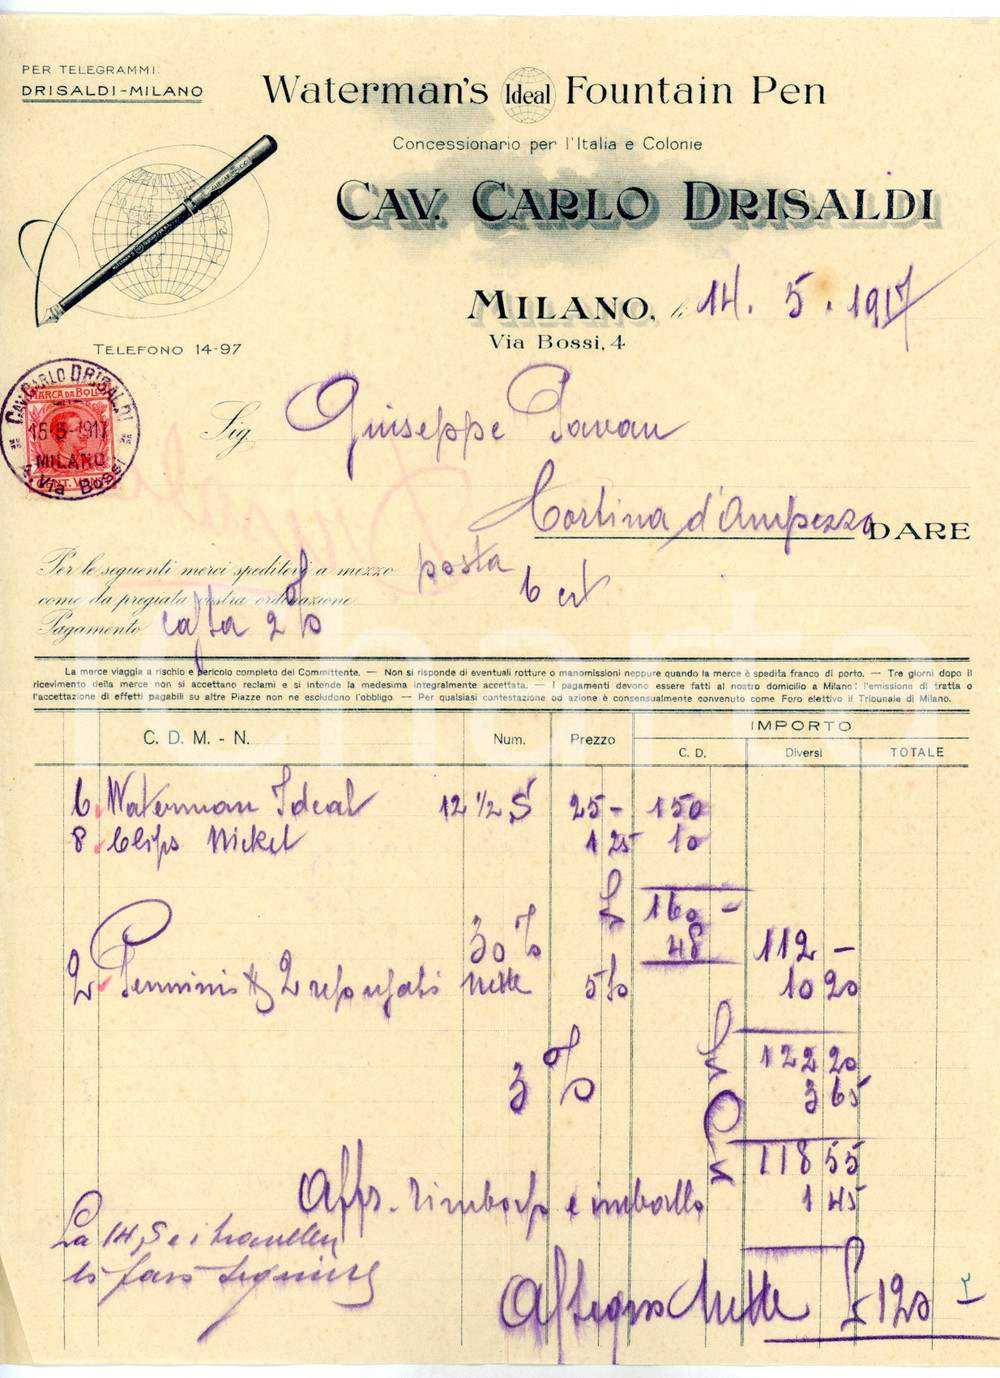 PER TELEGRAMMI:
DRISALDI-MILANO
Waterman's Ideal Fountain Pen
Concessionario per l'Italia e Colonie
CAV. CARLO DRISALDI
MILANO, li 14. 5. 1917
Via Bossi, 4
TELEFONO 14-97
CAV. CARLO DRISALDI
MARCA DA BOLLO
15-5-1917
MILANO
CENT. VENTI
4. Via Bossi
Sig. Giuseppe Pavan
Cortina d'Ampezzo DARE
Per le seguenti merci speditevi a mezzo posta
come da pregiata vostra ordinazione
Pagamento 2%
La merce viaggia a rischio e pericolo completo del Committente. — Non si risponde di eventuali rotture o manomissioni neppure quando la merce è spedita franco di porto. — Tre giorni dopo il
ricevimento della merce non si accettano reclami e si intende la medesima integralmente accettata. — I pagamenti devono essere fatti al nostro domicilio a Milano: l'emissione di tratta o
l'accettazione di effetti pagabili su altre Piazze non ne escludono l'obbligo — Per qualsiasi contestazione od azione è consensualmente convenuto come Foro elettivo il Tribunale di Milano.
C. D. M. - N. Num. Prezzo IMPORTO
C. D. Diversi TOTALE
6 Waterman Ideal 12 1/2 S 25- 150
8 Clips Nickel 1 25 10
£ 160 -
30% 48 112 -
2 Pennini 2 nette 10 20
£ 122 20
3% 3 65
£ 118 55
Aff. rimborso e imballo 1 45
La 14,5
£ 120 -